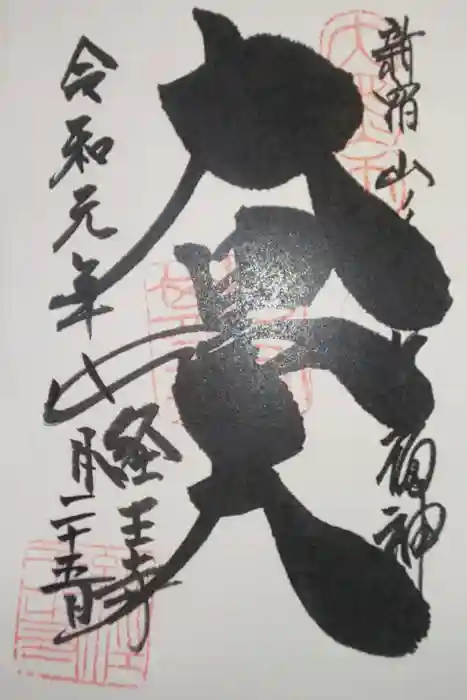 新宿山
福神
大黒天
令和元年
月二十五日
経王寺